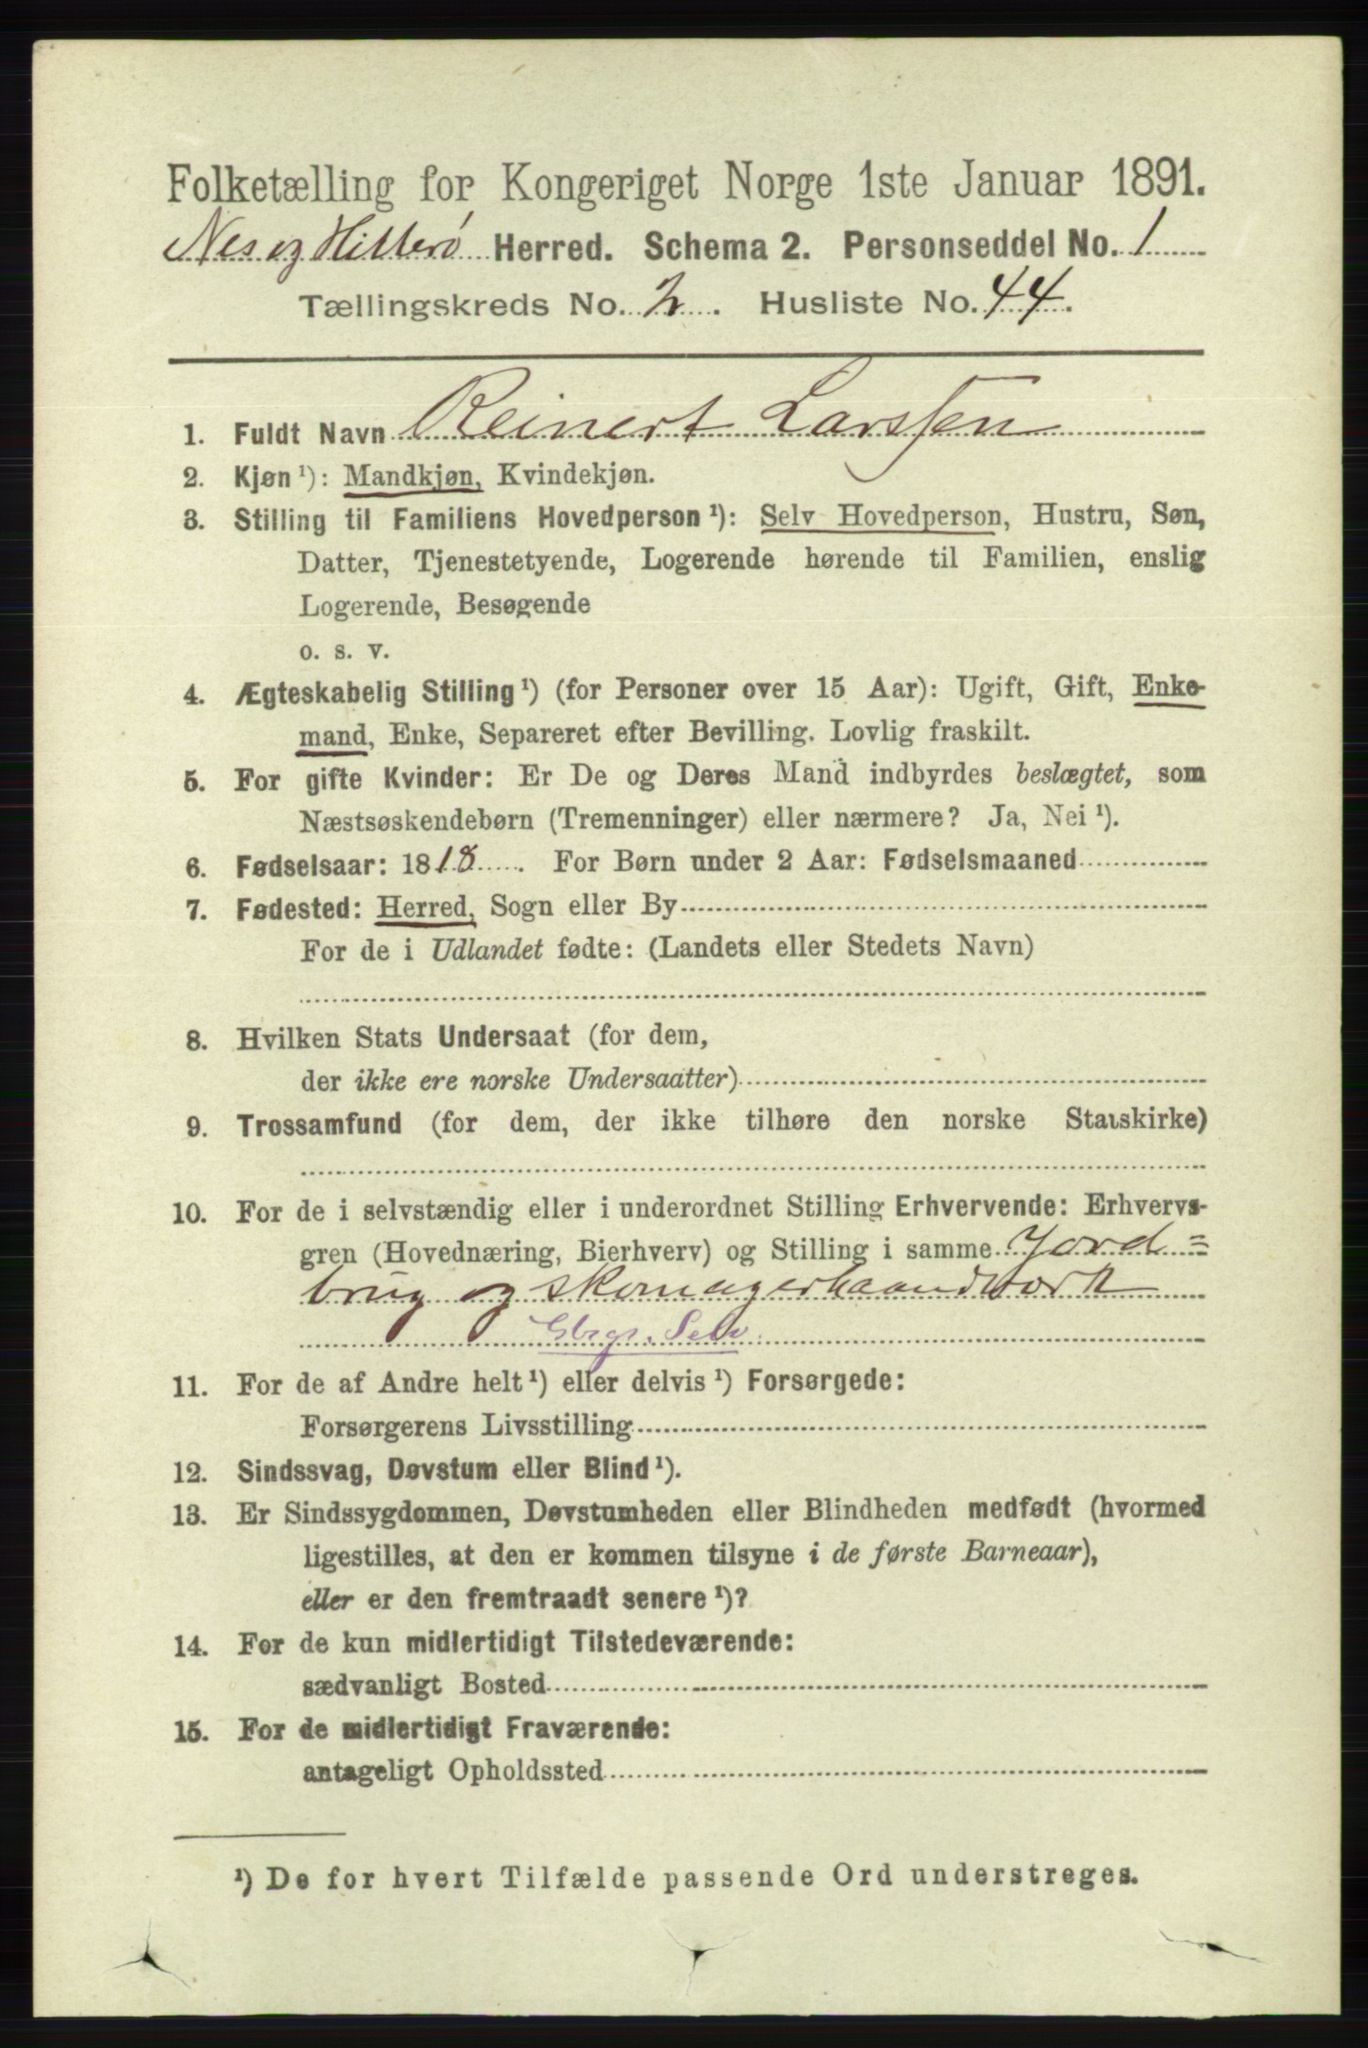 Folketælling for Kongeriget Norge 1ste Januar 1891.
Nes og Hitterø Herred. Schema 2. Personseddel No. 1
Tællingskreds No. 2. Husliste No. 44.
1. Fuldt Navn Reinert Larssen
2. Kjøn ¹): Mandkjøn, Kvindekjøn.
3. Stilling til Familiens Hovedperson ¹): Selv Hovedperson, Hustru, Søn,
Datter, Tjenestetyende, Logerende hørende til Familien, enslig
Logerende, Besøgende
o. s. v.
4. Ægteskabelig Stilling ¹) (for Personer over 15 Aar): Ugift, Gift, Enke-
mand, Enke, Separeret efter Bevilling. Lovlig fraskilt.
5. For gifte Kvinder: Er De og Deres Mand indbyrdes beslægtet, som
Næstsøskendebørn (Tremenninger) eller nærmere? Ja, Nei ¹).
6. Fødselsaar: 1818. For Børn under 2 Aar: Fødselsmaaned
7. Fødested: Herred, Sogn eller By
For de i Udlandet fødte: (Landets eller Stedets Navn)
8. Hvilken Stats Undersaat (for dem,
der ikke ere norske Undersaatter)
9. Trossamfund (for dem, der ikke tilhøre den norske Statskirke)
10. For de i selvstændig eller i underordnet Stilling Erhvervende: Erhvervs-
gren (Hovednæring, Bierhverv) og Stilling i samme Jord=
brug og skomagerhaandværk
Gbrgr. Selv.
11. For de af Andre helt ¹) eller delvis ¹) Forsørgede:
Forsørgerens Livsstilling
12. Sindssvag, Døvstum eller Blind ¹).
13. Er Sindssygdommen, Døvstumheden eller Blindheden medfødt (hvormed
ligestilles, at den er kommen tilsyne i de første Barneaar),
eller er den fremtraadt senere ¹)?
14. For de kun midlertidigt Tilstedeværende:
sædvanligt Bosted
15. For de midlertidigt Fraværende:
antageligt Opholdssted
¹) De for hvert Tilfælde passende Ord understreges.